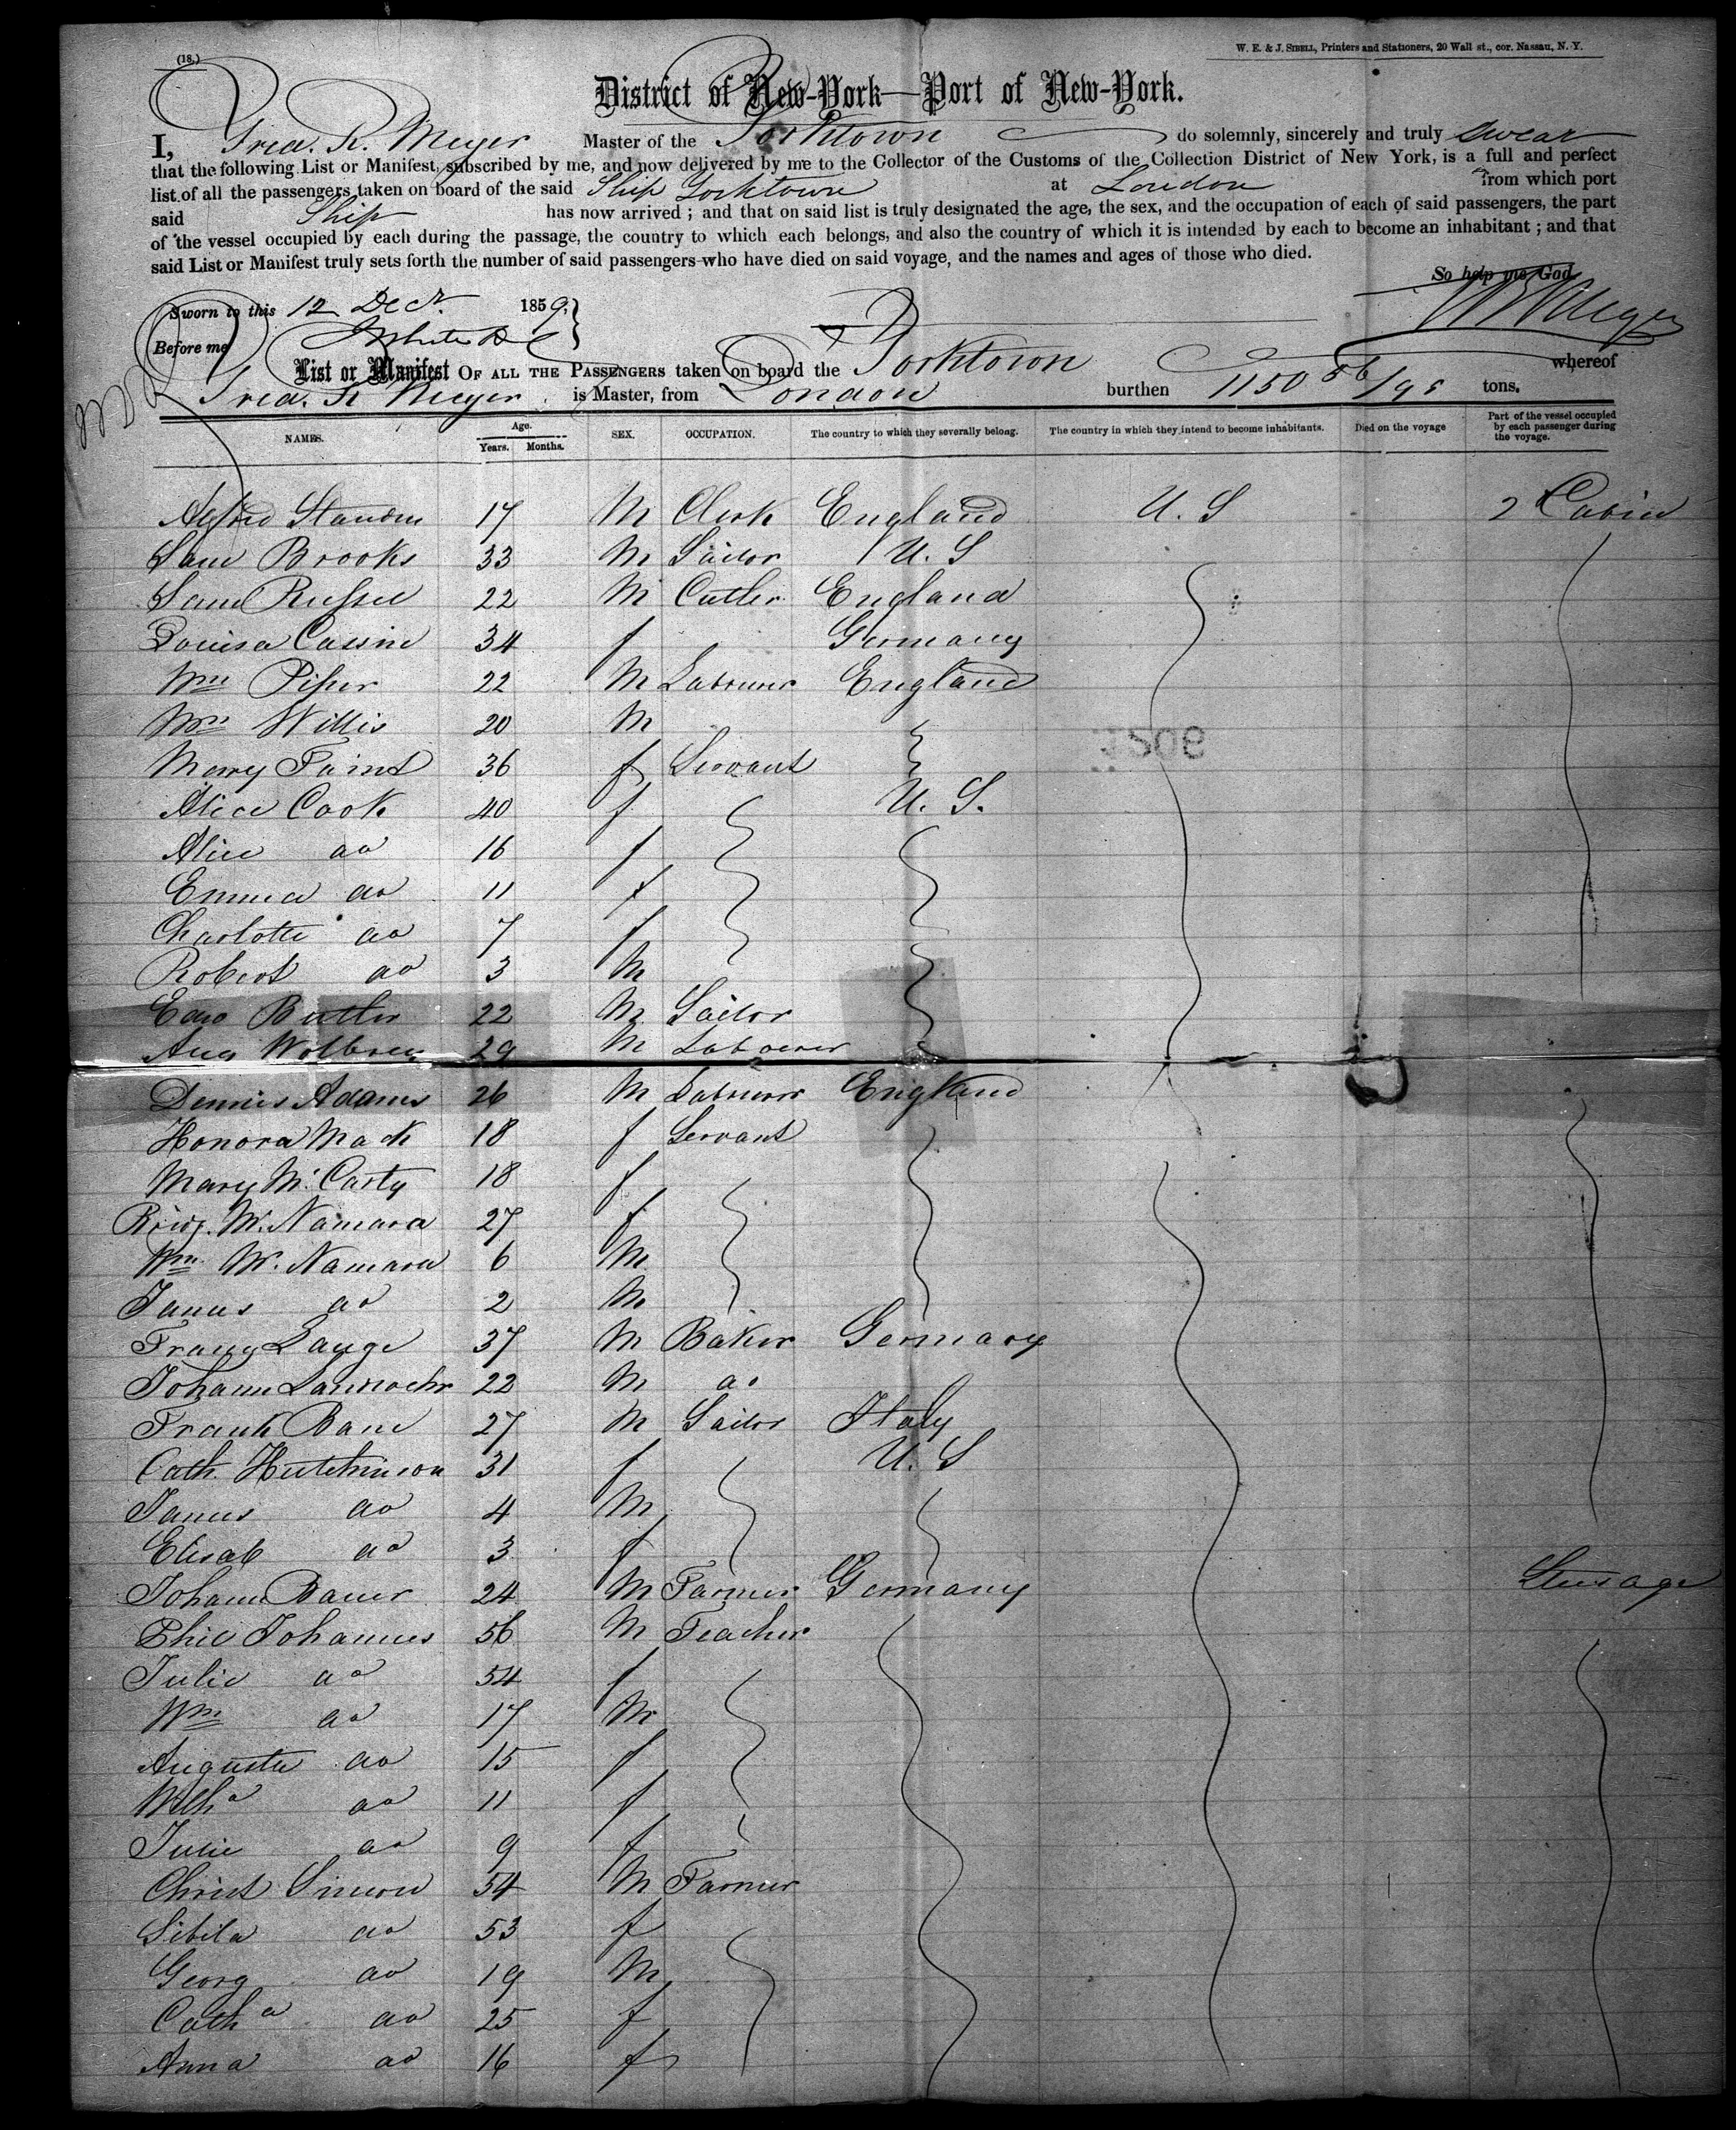 (18.)
W. E. & J. SIBELL, Printers and Stationers, 20 Wall st., cor. Nassau, N. Y.
District of New-York—Port of New-York.
I, Fred. R. Meyer Master of the Yorktown do solemnly, sincerely and truly swear
that the following List or Manifest, subscribed by me, and now delivered by me to the Collector of the Customs of the Collection District of New York, is a full and perfect
list of all the passengers taken on board of the said Ship Yorktown at London from which port
said Ship has now arrived ; and that on said list is truly designated the age, the sex, and the occupation of each of said passengers, the part
of the vessel occupied by each during the passage, the country to which each belongs, and also the country of which it is intended by each to become an inhabitant ; and that
said List or Manifest truly sets forth the number of said passengers who have died on said voyage, and the names and ages of those who died.
So help me God.
Sworn to this 12 Decr. 1859.
Before me
List or Manifest OF ALL THE PASSENGERS taken on board the Yorktown whereof
Fred. R Meyer is Master, from London burthen 1150 56/95 tons.
NAMES. Age. Years. Months. SEX. OCCUPATION. The country to which they severally belong. The country in which they intend to become inhabitants. Died on the voyage Part of the vessel occupied by each passenger during the voyage.
17 M Clerk England U. S 2 Cabin
Sam Brooks 33 M Sailor U. S
Sam Russel 22 M Cutler England
Louisa Cassin 34 f Germany
Wm Piper 22 M Labourer England
Willis 20 M
Mary 36 f Servant
Alice Cook 40 f U. S.
Alice do 16 f
Emma do 11 f
Charlotte do 7 f
Robert do 3 M
Edwd Butler 22 M Sailor
Aug 29 M Labourer
Dennis Adams 26 M Labourer England
Honora Mack 18 f Servant
Mary McCarty 18 f
Bridg. McNamara 27 f
Wm McNamara 6 M
James do 2 M
Franz Lange 37 M Baker Germany
Johann 22 M do
Frank Bane 27 M Sailor Italy
Cath Hutchinson 31 f U. S
James do 4 M
Elisab do 3 f
Johann Bauer 24 M Farmer Germany Steerage
Phil Johannes 56 M Teacher
Julie do 54 f
Wm do 17 M
Auguste do 15 f
Wilha do 11 f
Julie do 9 f
Christ Simon 54 M Farmer
Sibila do 53 f
Georg do 19 M
Catha do 25 f
Anna do 16 f